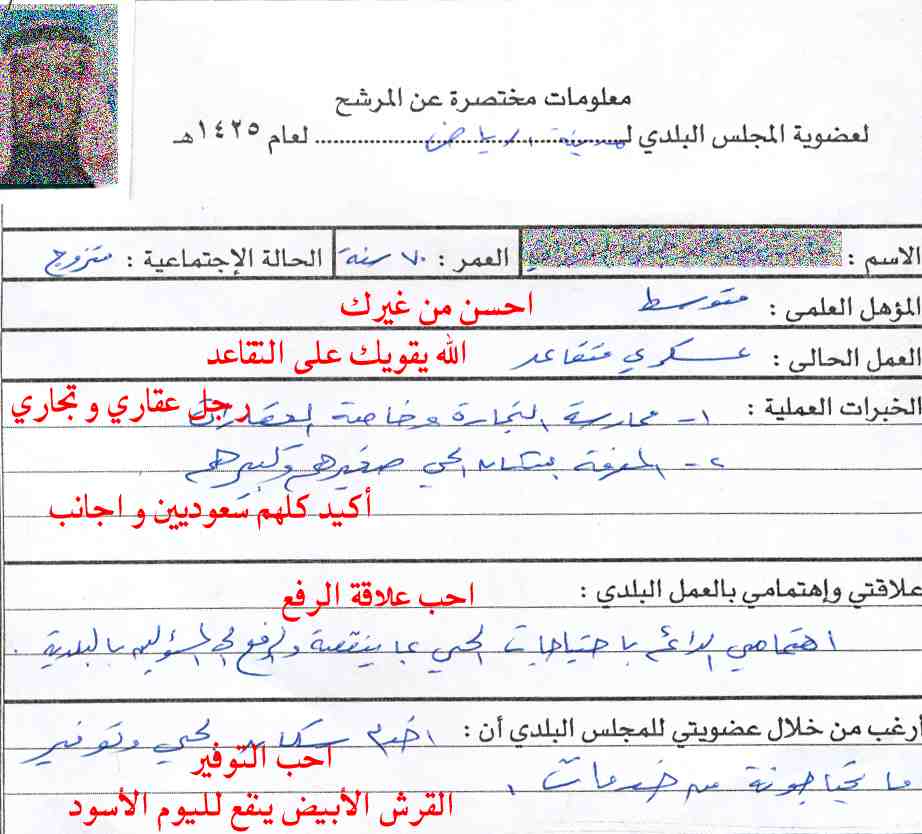 معلومات مختصرة عن المرشح
لعضوية المجلس البلدي لـ مدينة الرياض لعام ١٤٢٥هـ
الاسم : العمر : ٧٠ سنة الحالة الإجتماعية : متزوج
المؤهل العلمى : متوسط احسن من غيرك
العمل الحالى : عسكري متقاعد الله يقويك على التقاعد
الخبرات العملية : ١- ممارسة التجارة وخاصة العقارات رجل عقاري و تجاري
٢- المعرفة بسكان الحي صغيرهم وكبيرهم
أكيد كلهم سعوديين و اجانب
علاقتي وإهتمامي بالعمل البلدي : احب علاقة الرفع
اهتمامي الدائم باحتياجات الحي بما ينقصه والرفع الى المسؤلين بالبلدية .
أرغب من خلال عضويتي للمجلس البلدي أن : اخدم سكان الحي وتوفير
احب التوفير
ما يحتاجونة من خدمات .
القرش الأبيض ينفع لليوم الأسود